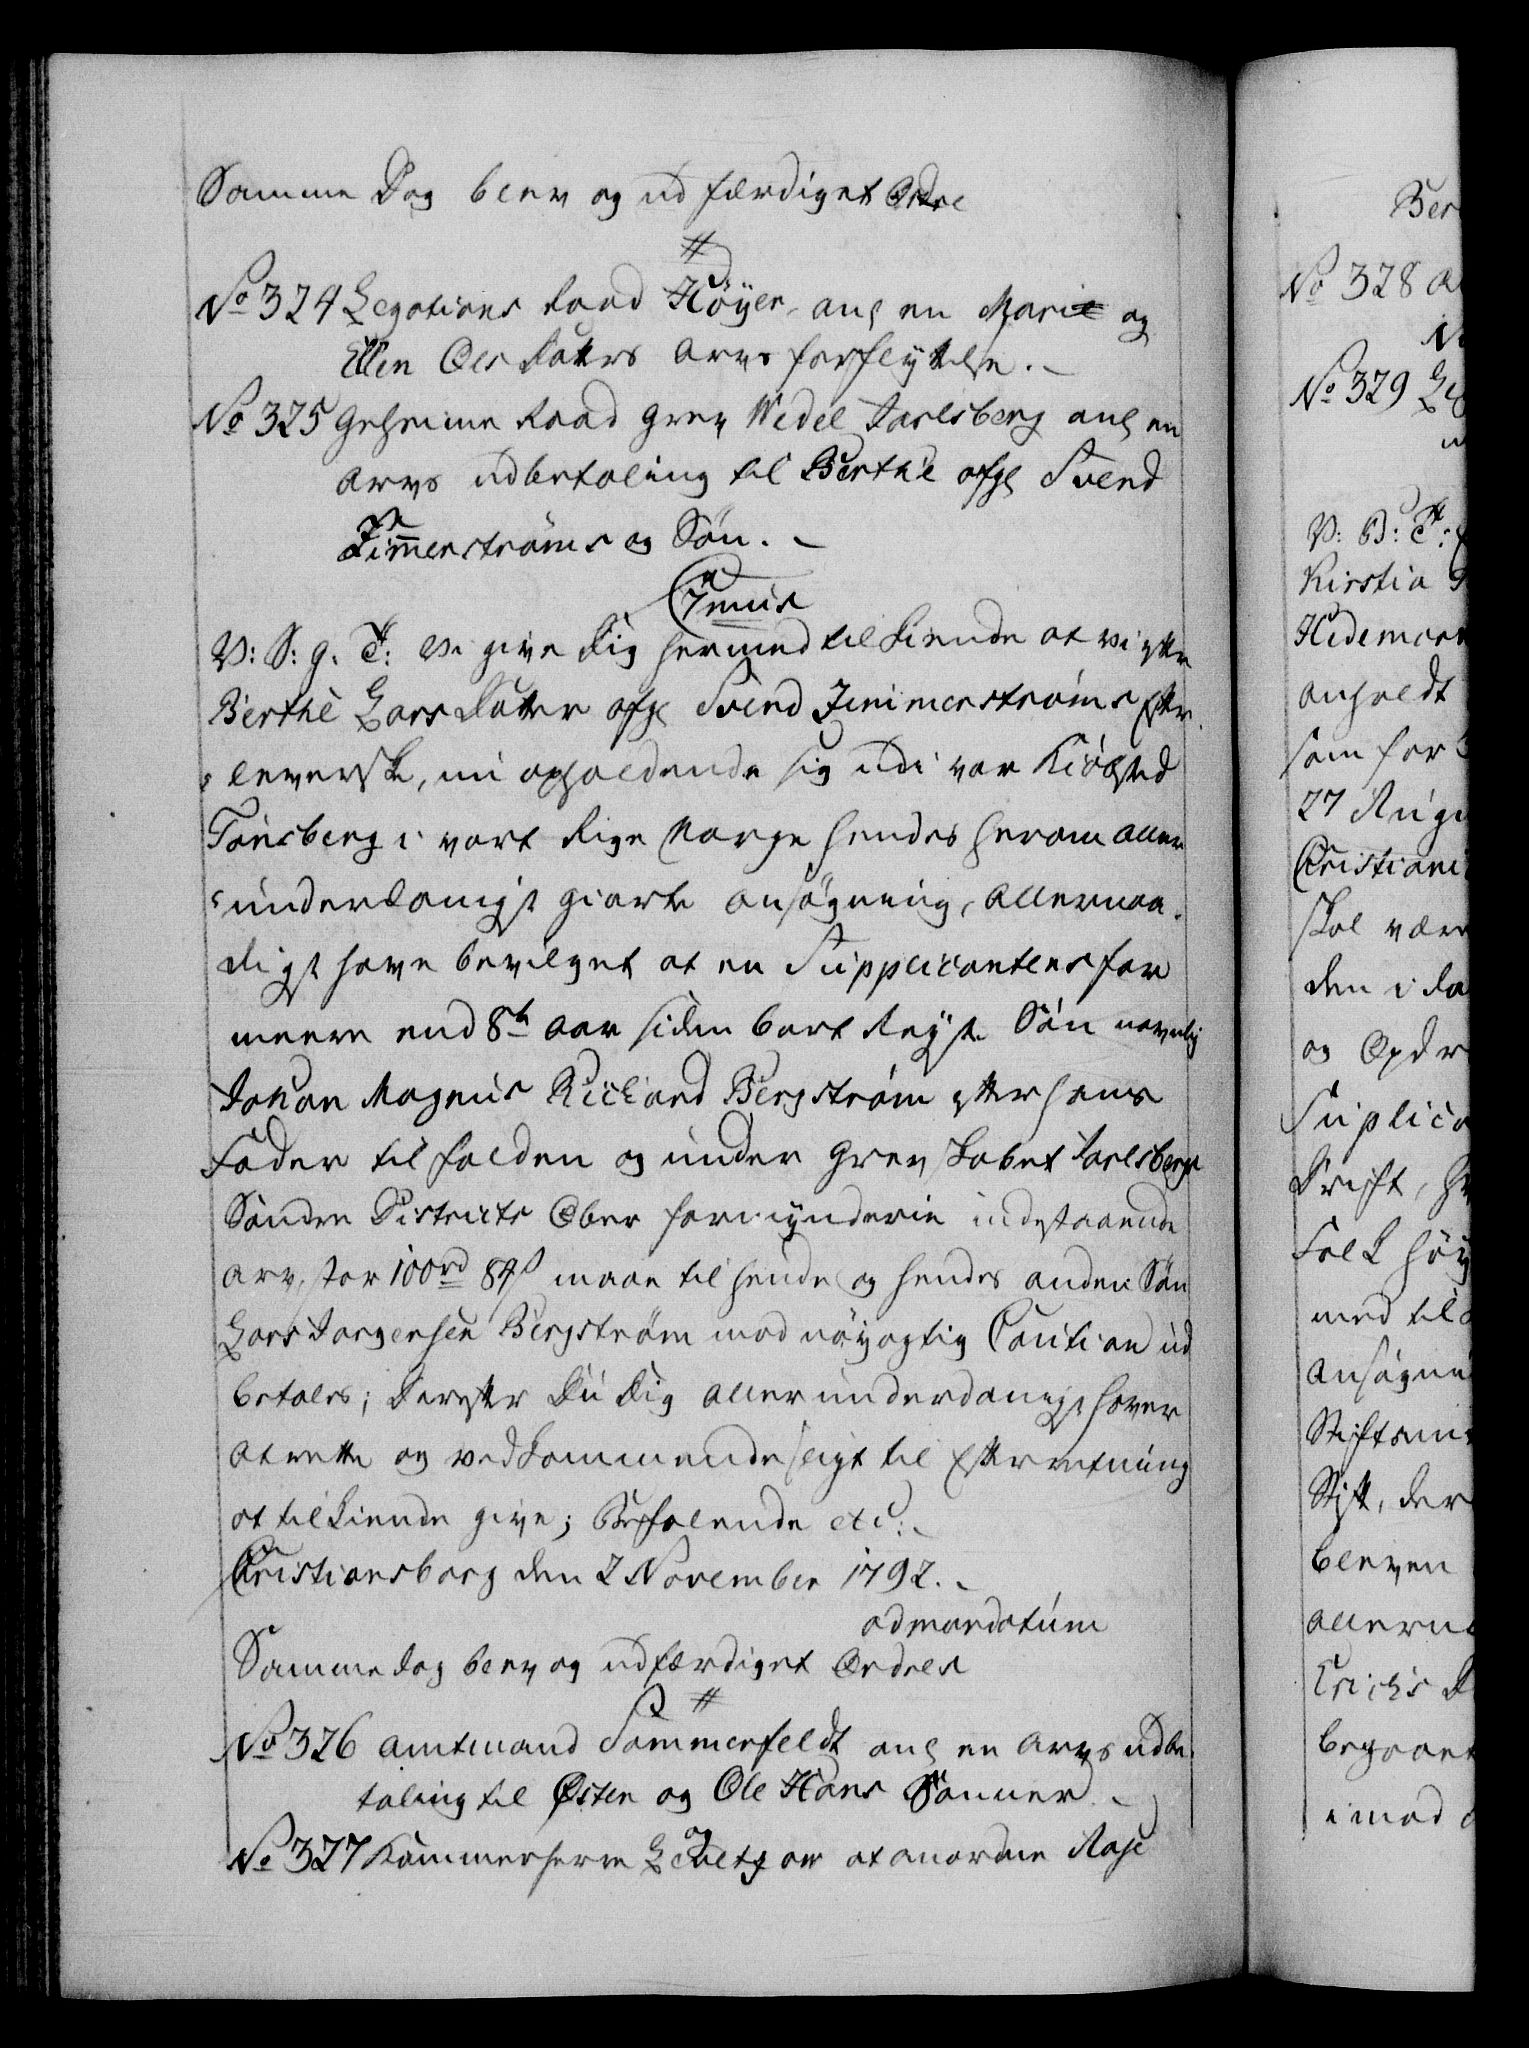 Samme Dag blev og udfærdiget Ordre
#
No 324 Legations Raad Höyer, ang en Marie og
Ellen Ols Datters Arvs forflyttelse.
No 325 Geheime Raad Grev Wedel Jarlsberg ang en
Arvs udbetaling til Berthe afg Svend
Zimmerströms og Sön.
V: S: g. T: Vi give dig hermed tilkiende at vi efter
Berthe Lars Datter afg Svend Zimmerströms Efter
leverske, nu opholdende sig udi vor Kiöbsted
Tönsberg i vort Rige Norge hendes herom aller
underdanigst giorte ansögning, allernaa
digst have bevilget at en Supplicantens for
meere end 8te Aar siden bort Reyste Sön navnlig
Johan Magnus Richard Bergström efter hans
Fader tilfalden og under Grevskabet Jarlsbergs
Söndre Districts Ober formynderie indestaaende
Arv, stor 100rd 84s maae til hende og hendes anden Sön
Lars Jørgensen Bergström mod nöyagtig Caution ud
betales; Derefter Du Dig allerunderdanigst haver
at rette og vedkommende sligt til Efterretning
at tilkiende give; Befalende etc:
Cristiansborg den 2 November 1792.
ad mandatum
Samme dag blev og udfærdiget Ordres
#
No 326 Amtmand Sommerfeldt ang en Arvs udbe
taling til Østen og Ole Hans Sönner
No 327 Kammerherre at anordne Rase
Ber
No 328
No 329
V: B: T:
Kirstia
Hedemark
anholdt
som for
27 Augu
Cristiani
skal være
den i da
og Opdr
Suplica
Drift,
Folk höy
med til
Ansögni
Stiftam
Stift, der
bleven
allerna
Erichs D
begaaet
imod